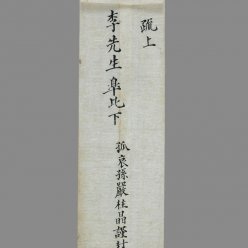 疏上
李先生皐比下
孤哀孫嚴柱晶謹封